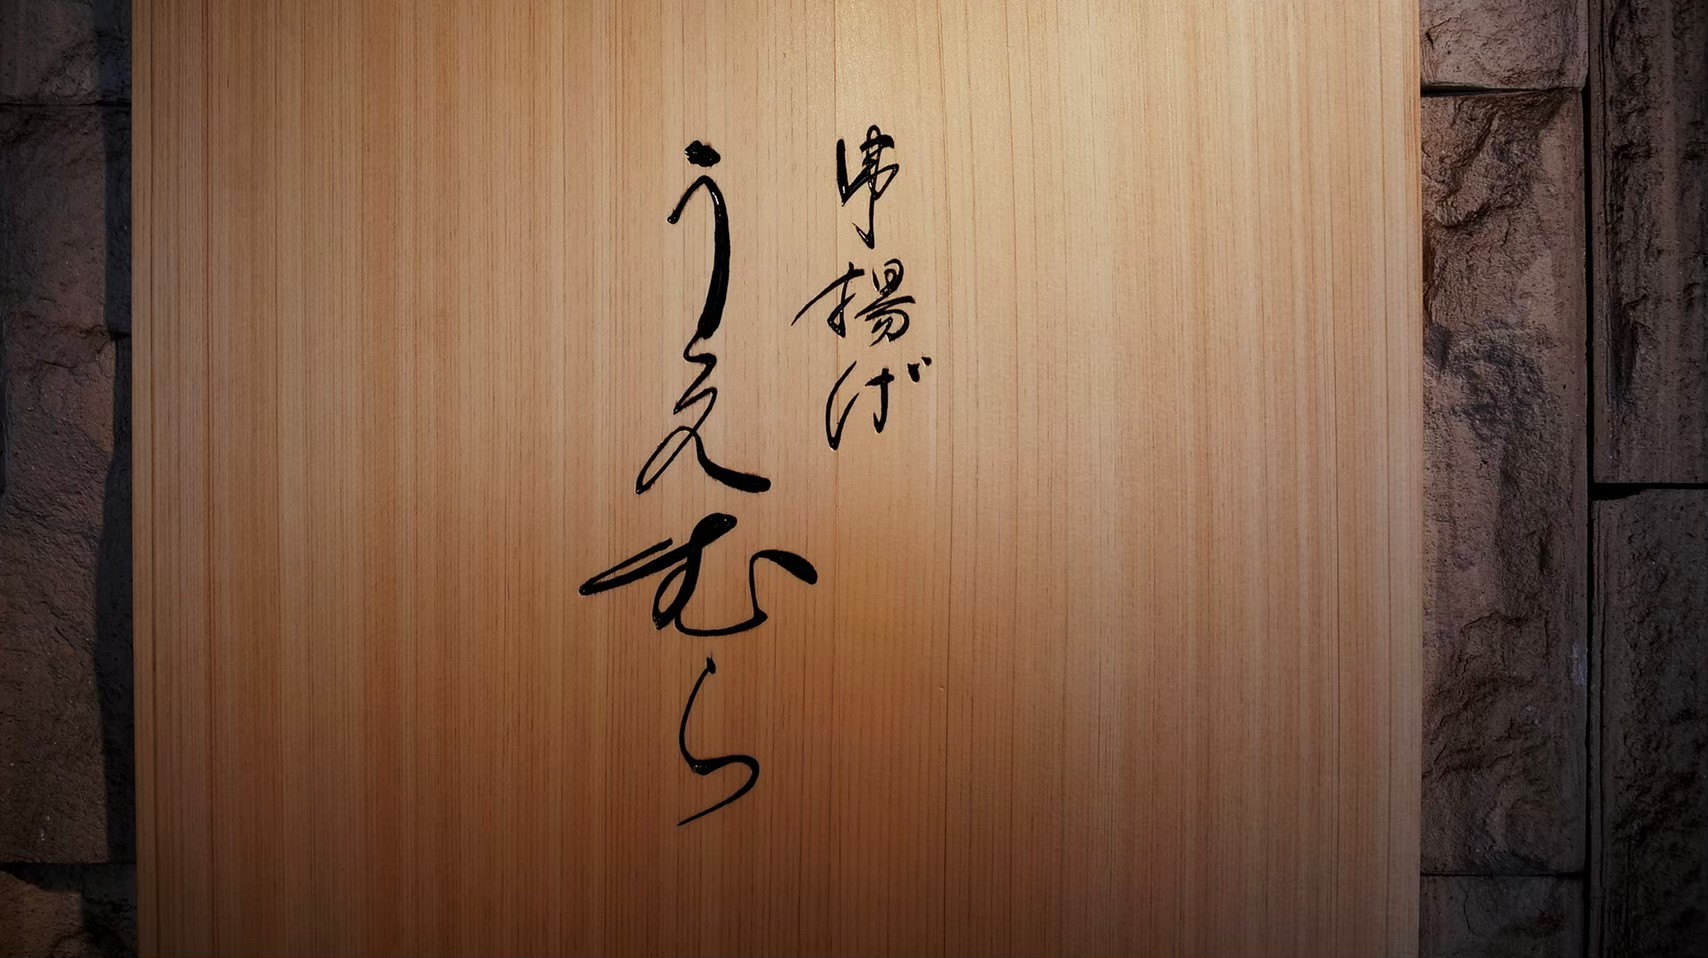 串揚げ
うえむら